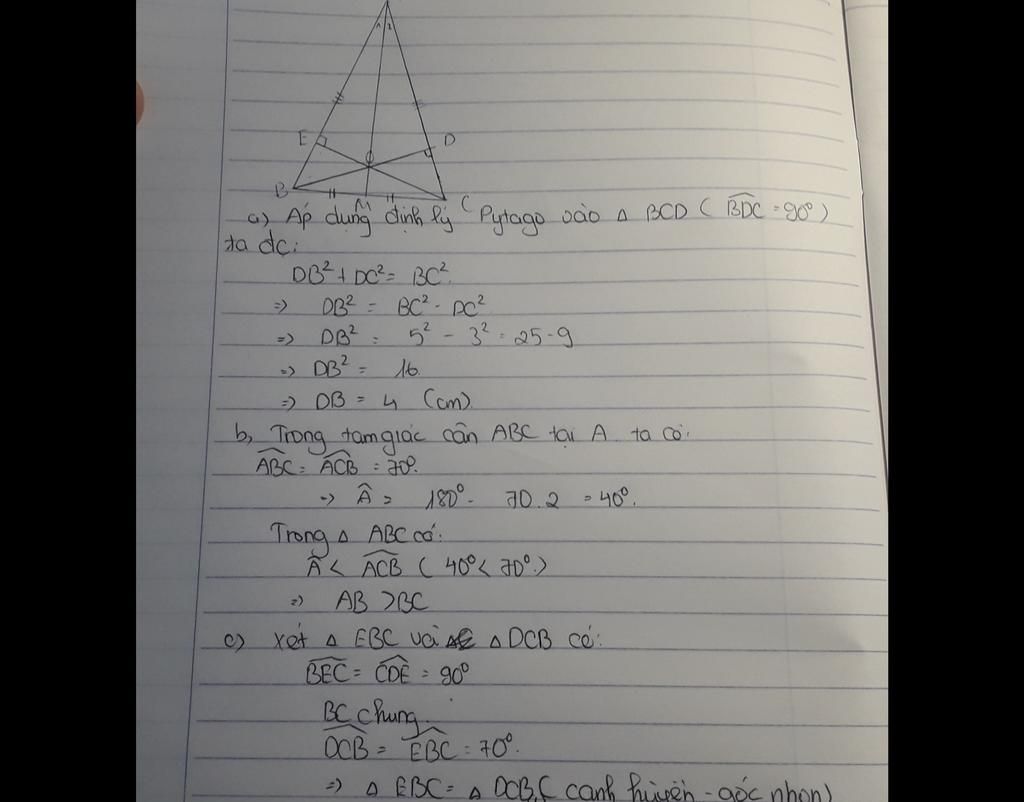 1 2
E D
O
B M C
a) Áp dụng định lý Pytago vào △ BCD ( BDC = 90° )
ta đc:
DB² + DC² = BC²
=> DB² = BC² - DC²
=> DB² = 5² - 3² = 25 - 9
=> DB² = 16
=> DB = 4 (cm)
b, Trong tam giác cân ABC tại A ta có:
ABC = ACB = 70°.
=> Â = 180° - 70.2 = 40°.
Trong △ ABC có:
Â < ACB ( 40° < 70° )
=> AB > BC
c) Xét △ EBC và △ DCB có:
BEC = CDE = 90°
BC chung.
DCB = EBC = 70°.
=> △ EBC = △ DCB ( cạnh huyền - góc nhọn)